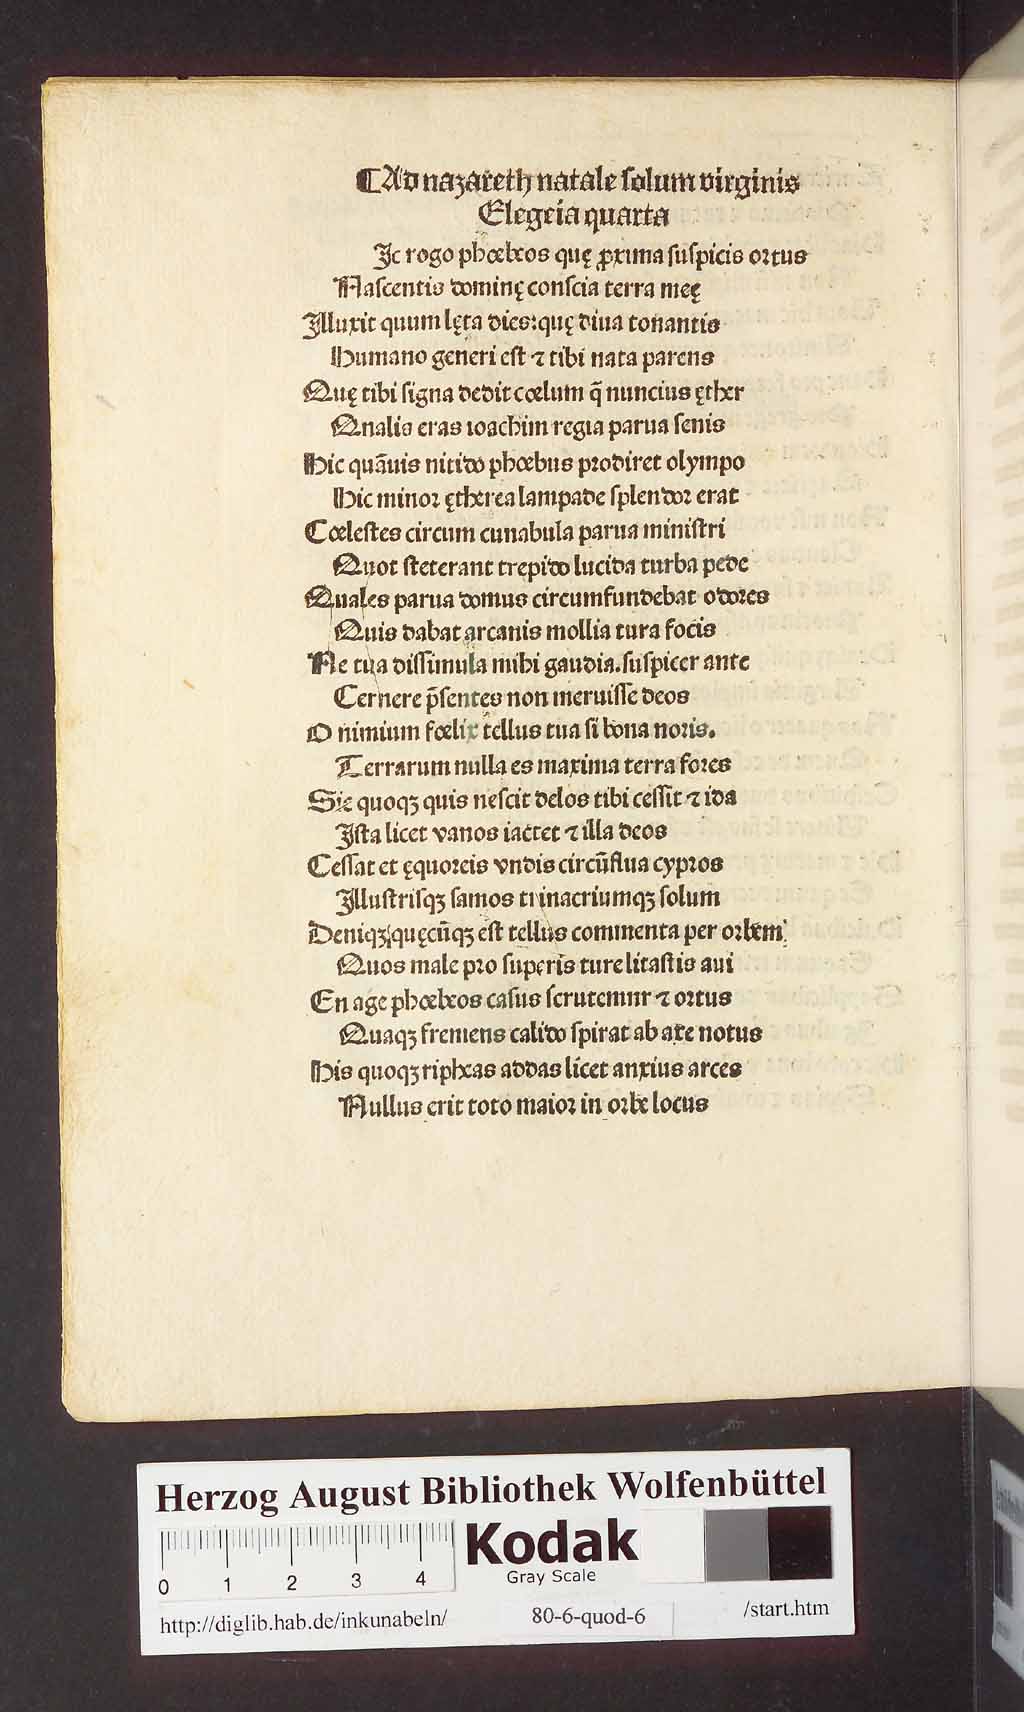 ¶Ad nazareth natale solum virginis
Elegeia quarta
Ic rogo phœbeos quę ꝓxima suspicis ortus
Nascentis dominę conscia terra meę
Illuxit quum lęta dies: quę diua tonantis
Humano generi est ⁊ tibi nata parens
Quę tibi signa dedit cœlum q̃ nuncius ęther
Qualis eras ioachim regia parua senis
Hic quãuis nitido phœbus prodiret olympo
Hic minor ętherea lampade splendor erat
Cœlestes circum cunabula parua ministri
Quot steterant trepido lucida turba pede
Quales parua domus circumfundebat odores
Quis dabat arcanis mollia tura focis
Ne tua dissimula mihi gaudia. suspicer ante
Cernere p̃sentes non meruisse deos
O nimium fœlix tellus tua si bona noris.
Terrarum nulla es maxima terra fores
Sic quoqꝫ quis nescit delos tibi cessit ⁊ ida
Ista licet vanos iactet ⁊ illa deos
Cessat et ęquoreis vndis circũflua cypros
Illustrisqꝫ samos trinacriumqꝫ solum
Deniqꝫ quęcũqꝫ est tellus commenta per orbem
Quos male pro superis ture litastis aui
En age phœbeos casus scrutemur ⁊ ortus
Quaqꝫ fremens calido spirat ab axe notus
His quoqꝫ ripheas addas licet anxius arces
Nullus erit toto maior in orbe locus
Herzog August Bibliothek Wolfenbüttel
Kodak
Gray Scale
0 1 2 3 4
http://diglib.hab.de/inkunabeln/ 80-6-quod-6 /start.htm